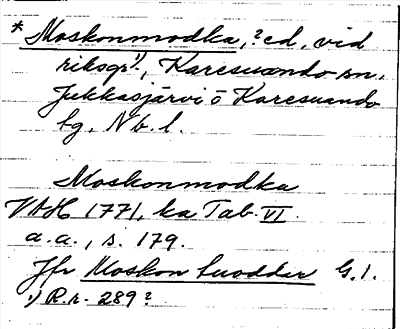 * Moskonmodka, ? ed, vid
riksgr¹⁾, Karesuando sn,
Jukkasjärvi o Karesuando
tg, Nb. l.
Moskonmodka
VAH 1771, ka Tab. VI
a.a., s. 179.
Jfr Moskon Luoddar G.1.
¹⁾ R.r. 289?